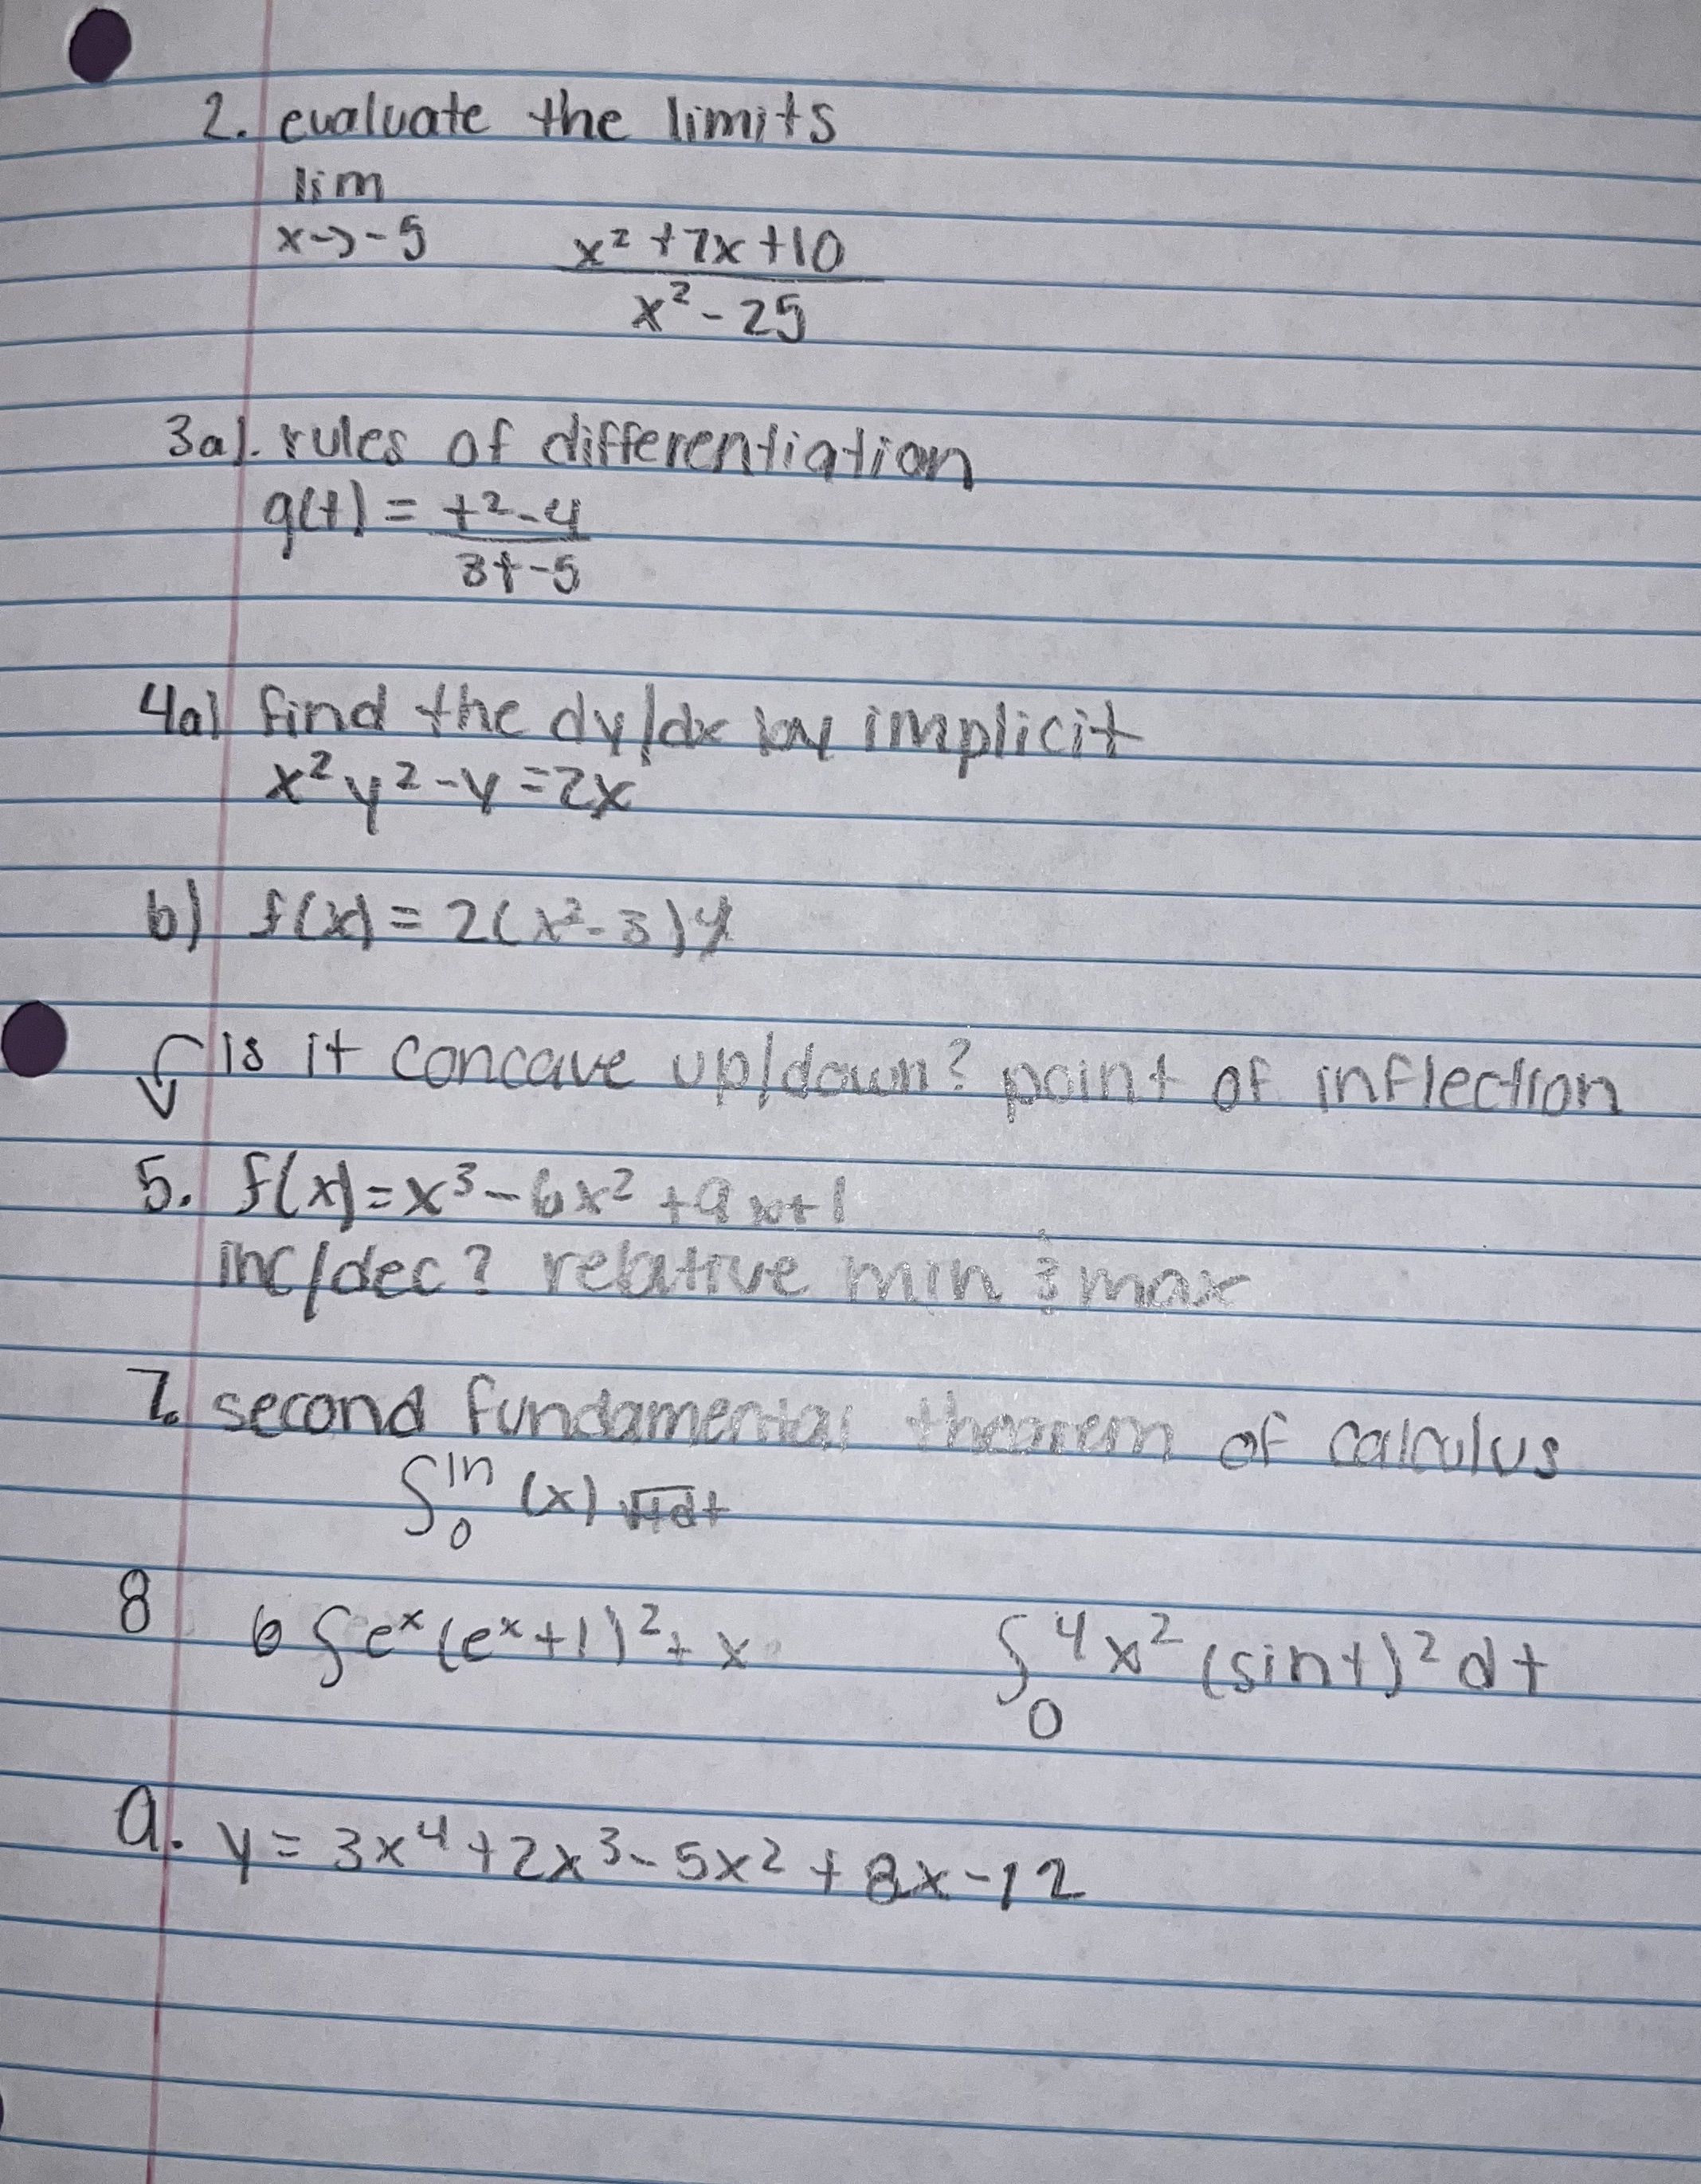 2. evaluate the limits
lim
x→-5 x² + 7x + 10
x² - 25
3a). rules of differentiation
g(t) = t² - 4
3t - 5
4a) find the dy/dx by implicit
x²y² - y = 2x
b) f(x) = 2(x² - 3)4
is it concave up/down? point of inflection
5. f(x) = x³ - 6x² + 9x + 1
inc/dec? relative min & max
7. second fundamental theorem of calculus
∫₀ˡⁿ (x) √t dt
8 6 ∫ eˣ(eˣ + 1)² + x ∫₀ 4x² (sin t)² dt
9. y = 3x⁴ + 2x³ - 5x² + 8x - 12